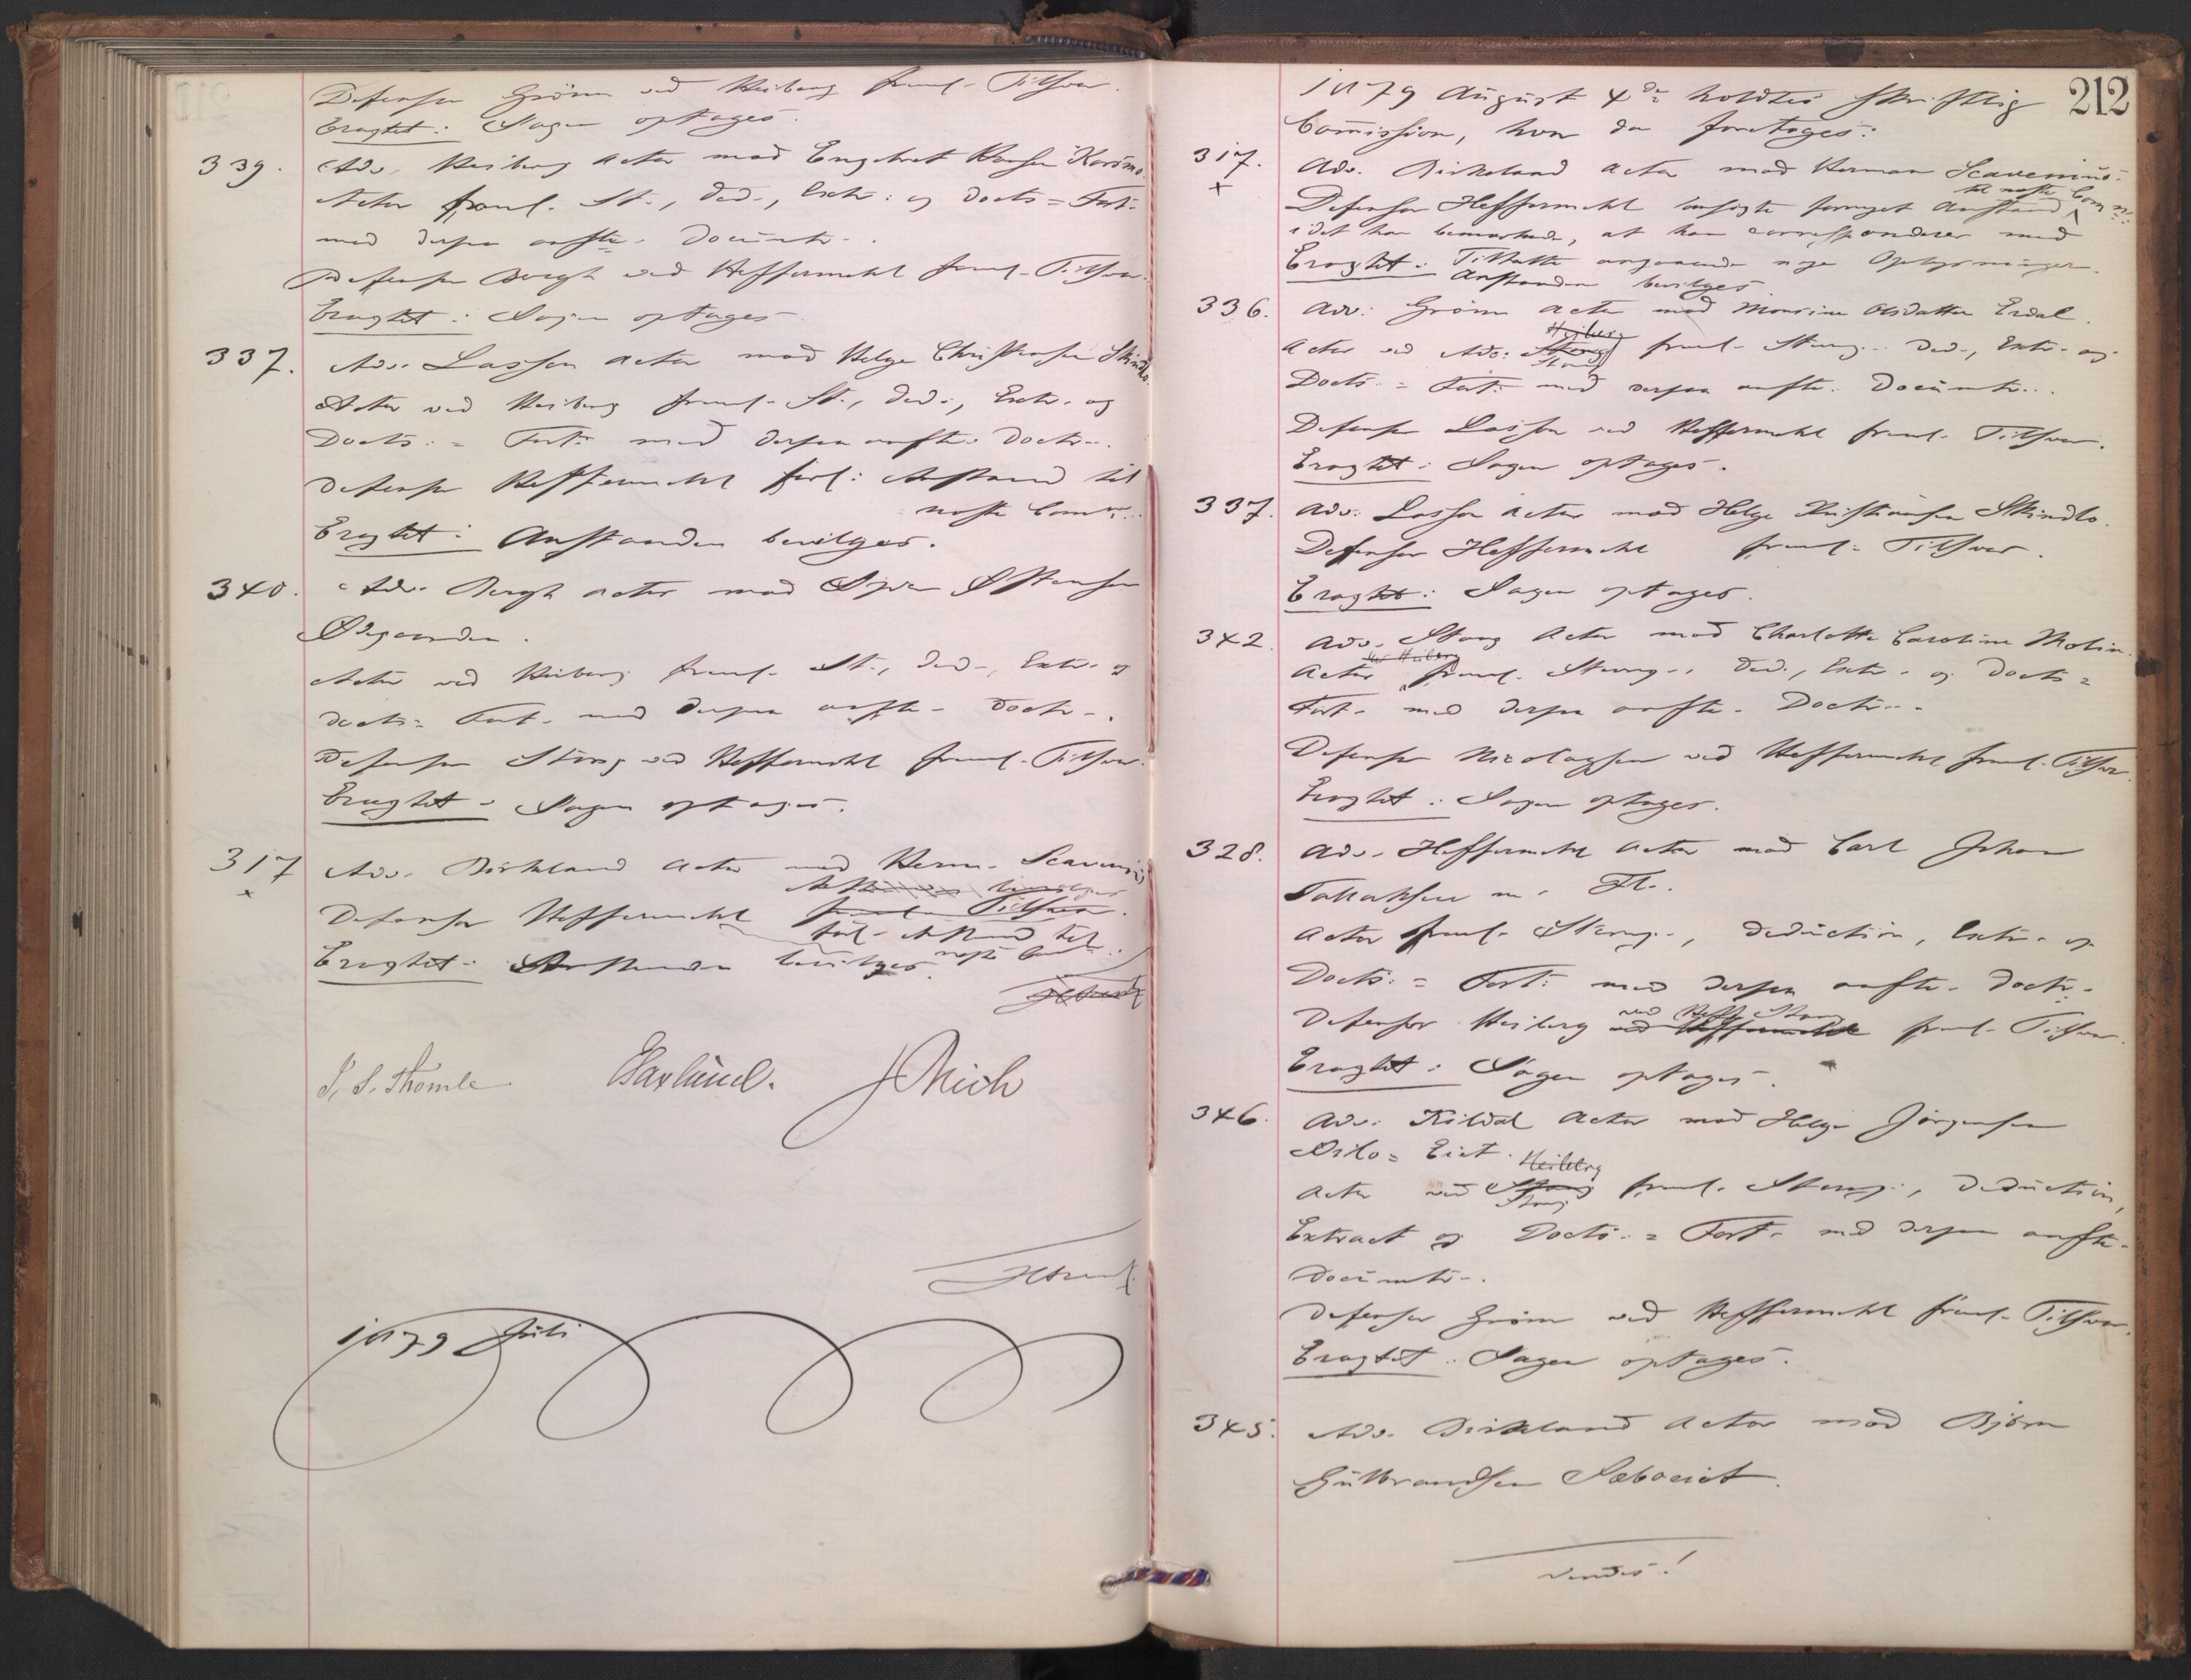 Defensor Grönn ved Heiberg freml. Tilsvar.
Eragtet: Sagen optages.
339. Adv. Heiberg Actor mod Engebret Hansen
Actor freml. St., Ded., Extr. og Docts = Fort.
med derpaa anfte. Documtr.
Defensor Bergh ved Heffermehl freml. Tilsvar.
Eragtet: Sagen optages
337. Adv. Lassen Actor mod Helge Christiansen Skindlo.
Actor ved Heiberg freml. St., Ded., Extr. og
Docts. = Fort. med derpaa anfte. Doctr.
Defensor Heffermehl forl. Anstand til
næste Comn.
Eragtet: Anstanden bevilges.
340. Adv. Bergh Actor mod
Ødegaarden.
Actor ved Heiberg freml. St., Ded., Extr. og
docts = Fort. med derpaa anfte. Doctr.
Defensor Stang ved Heffermehl freml. Tilsvar.
Eragtet: Sagen optages.
317 Adv. Birkeland Actor mod Herm. Scavenius
x Anstanden bevilges
Defensor Heffermehl freml. Tilsvar.
forl. Anstand til
Eragtet: Anstanden bevilges. næste Com.
J. S. Thomle Haslund. J Mich
1879 Juli
212
1879 August 4de holdtes skriftlig
Commission, hvor da foretoges:
317. Adv. Birkeland Actor mod Herman Scavenius.
x til næste Comn.
Defensor Heffermehl fornyet Anstand
idet han bemærkede, at han corresponderer med
Eragtet: Tiltalte angaaende nye Oplysninger.
Anstanden bevilges
336. Adv. Grönn Actor mod Monsine Olsdatter Erdal.
Heiberg
Actor ved Adv. Stang freml. Stevng. Ded., Extr. og
Stang
Docts. = Fort. med derpaa anfte. Documtr.
Defensor Lassen ved Heffermehl freml. Tilsvar.
Eragtet: Sagen optages.
337. Adv. Lassen Actor mod Helge Kristiansen Skindlo.
Defensor Heffermehl freml. Tilsvar.
Eragtet: Sagen optages.
342. Adv. Stang Actor mod Charlotte Caroline Molin.
ved Heiberg
Actor freml. Stevng., Ded., Extr. og Docts =
Fort. med derpaa anfte. Doctr.
Defensor Nicolaysen ved Heffermehl freml. Tilsvar.
Eragtet: Sagen optages.
328. Adv. Heffermehl Actor mod Carl Johan
Tallaksen m. Fl.
Actor freml. Stevng., Deduction, Extr. og
Docts. = Fort. med derpaa anfte. Doctr.
ved Stang
Defensor Heiberg ved Heffermehl freml. Tilsvar.
Eragtet: Sagen optages.
346. Adv. Kildal Actor mod Helge Jörgensen
Oilo = Eiet. Heiberg
Actor ved Stang freml. Stevng., Deduction,
Stang
Extract og Docts. = Fort. med derpaa anfte.
Documtr.
Defensor Grönn ved Heffermehl freml. Tilsvar.
Eragtet: Sagen optages.
345. Adv. Birkeland Actor mod Björn
Gulbrandsen Sæboeiet.
vendes!